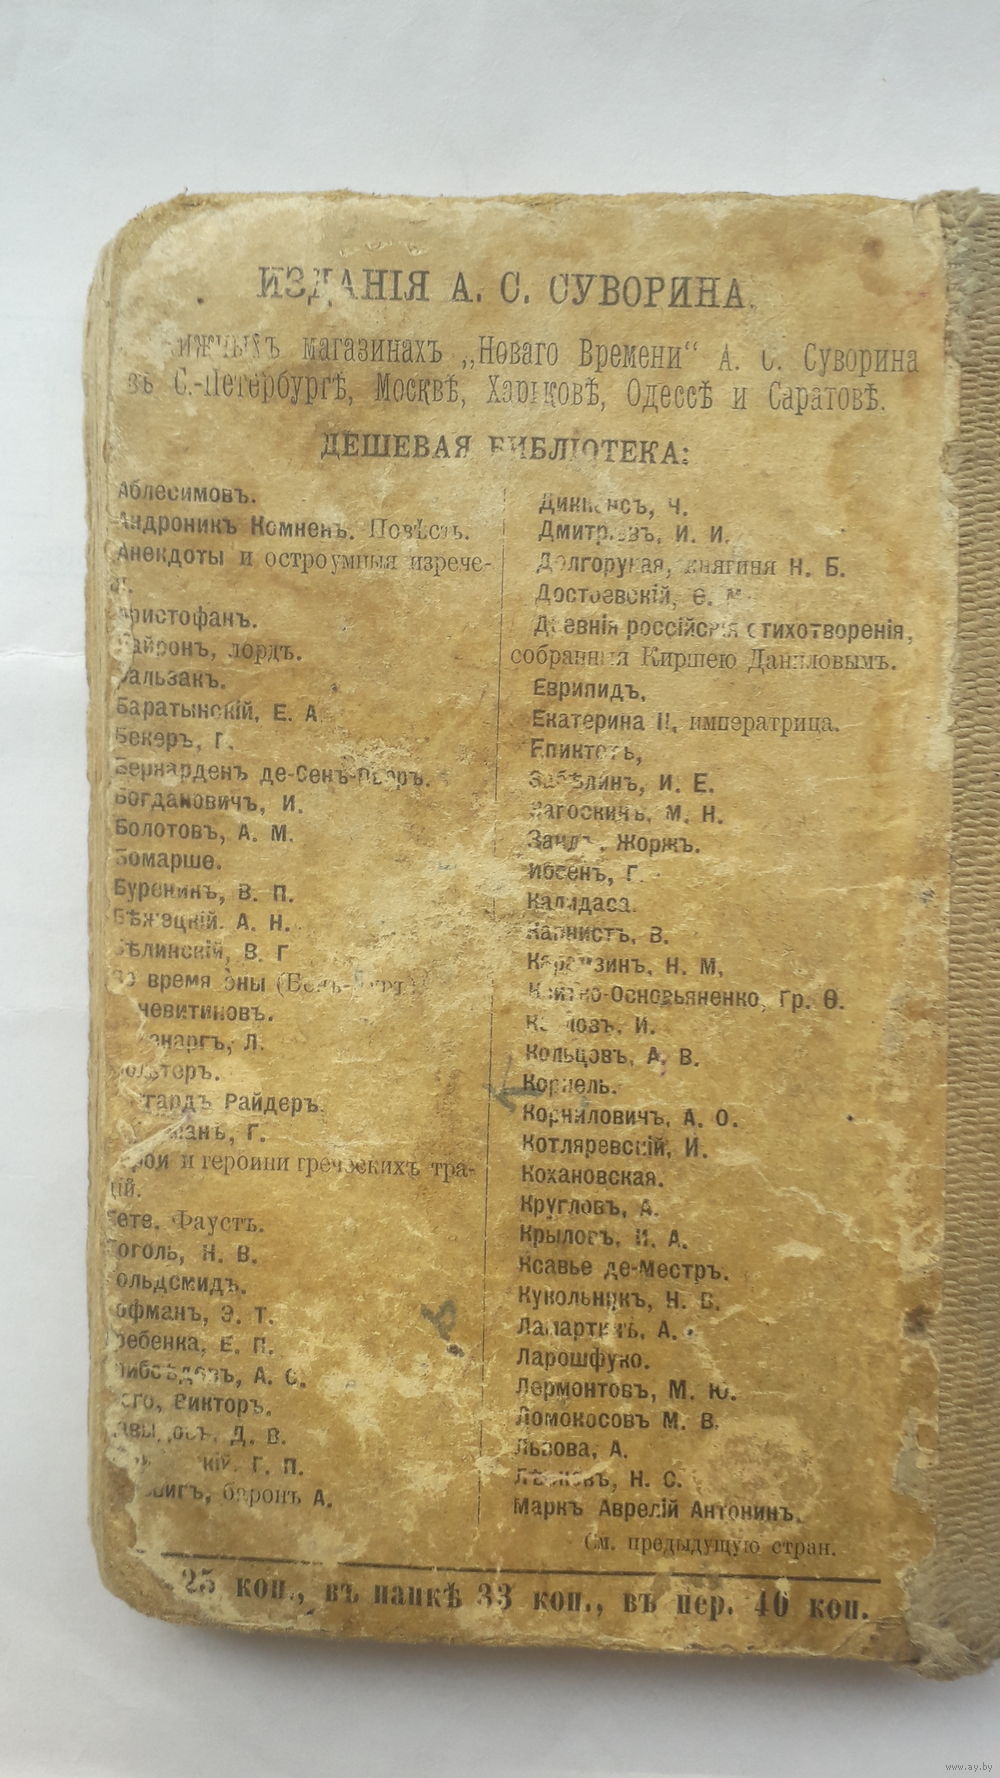 ИЗДАНІЯ А. С. СУВОРИНА.
магазинахъ „Новаго Времени“ А. С. Суворина
въ С.-Петербургѣ, Москвѣ, Харьковѣ, Одессѣ и Саратовѣ.
ДЕШЕВАЯ БИБЛІОТЕКА:
Аблесимовъ.
Андроникъ Комненъ. Повѣсть.
Анекдоты и остроумныя изрече-
Аристофанъ.
Байронъ, лордъ.
Бальзакъ.
Баратынскій, Е. А.
Бекеръ, Г.
Бернарденъ де-Сенъ-Пьеръ.
Богдановичъ, И.
Болотовъ, А. М.
Бомарше.
Буренинъ, В. П.
Бѣжецкій. А. Н.
Бѣлинскій, В. Г
время оны
Л.
Райдеръ.
Г.
и героини греческихъ тра-
Гете. Фаустъ.
Гоголь, Н. В.
Гольдсмидъ.
Гофманъ, Э. Т.
Гребенка, Е. П.
А. С.
Викторъ.
Д. В.
Г. П.
баронъ А.
Диккенсъ, Ч.
Дмитріевъ, И. И.
Долгорукая, княгиня Н. Б.
Достоевскій, Ѳ. М.
Древнія россійскія стихотворенія,
собранныя Киршею Даниловымъ.
Еврипидъ,
Екатерина II, императрица.
Епиктетъ,
Забѣлинъ, И. Е.
Загоскинъ, М. Н.
Зандъ, Жоржъ.
Ибсенъ, Г.
Калидаса.
Капнистъ, В.
Карамзинъ, Н. М,
Квитко-Основьяненко, Гр. Ѳ.
И.
Кольцовъ, А. В.
Корнель.
Корниловичъ, А. О.
Котляревскій, И.
Кохановская.
Кругловъ, А.
Крыловъ, И. А.
Ксавье де-Местръ.
Кукольникъ, Н. В.
А.
Ларошфуко.
Лермонтовъ, М. Ю.
Ломокосовъ М. В.
Львова, А.
Лѣсковъ, Н. С.
Маркъ Аврелій Антонинъ.
См. предыдущую стран.
25 коп., въ папкѣ 33 коп., въ пер. 40 коп.
www.ay.by